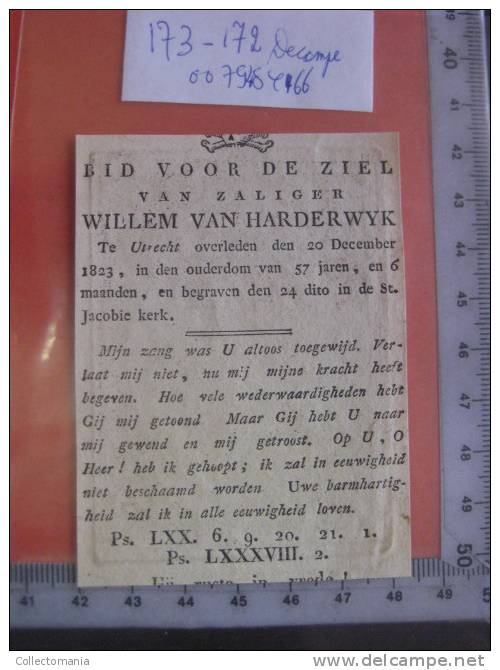 173-172 Decompe
BID VOOR DE ZIEL
VAN ZALIGER
WILLEM VAN HARDERWYK
Te Utrecht overleden den 20 December
1823, in den ouderdom van 57 jaren, en 6
maanden, en begraven den 24 dito in de St.
Jacobie kerk.
Mijn zang was U altoos toegewijd. Ver-
laat mij niet, nu mij mijne kracht heeft
begeven. Hoe vele wederwaardigheden hebt
Gij mij getoond Maar Gij hebt U naar
mij gewend en mij getroost. Op U, O
Heer! heb ik gehoopt; ik zal in eeuwigheid
niet beschaamd worden Uwe barmhartig-
heid zal ik in alle eeuwigheid loven.
Ps. LXX. 6. 9. 20. 21. 1.
Ps. LXXXVIII. 2.
Hij ruste in vrede!
40 41 42 43 44 45 46 47 48 49 50
41 42 43 44 45 46 47 48 49
Collectomania
www.delcampe.net